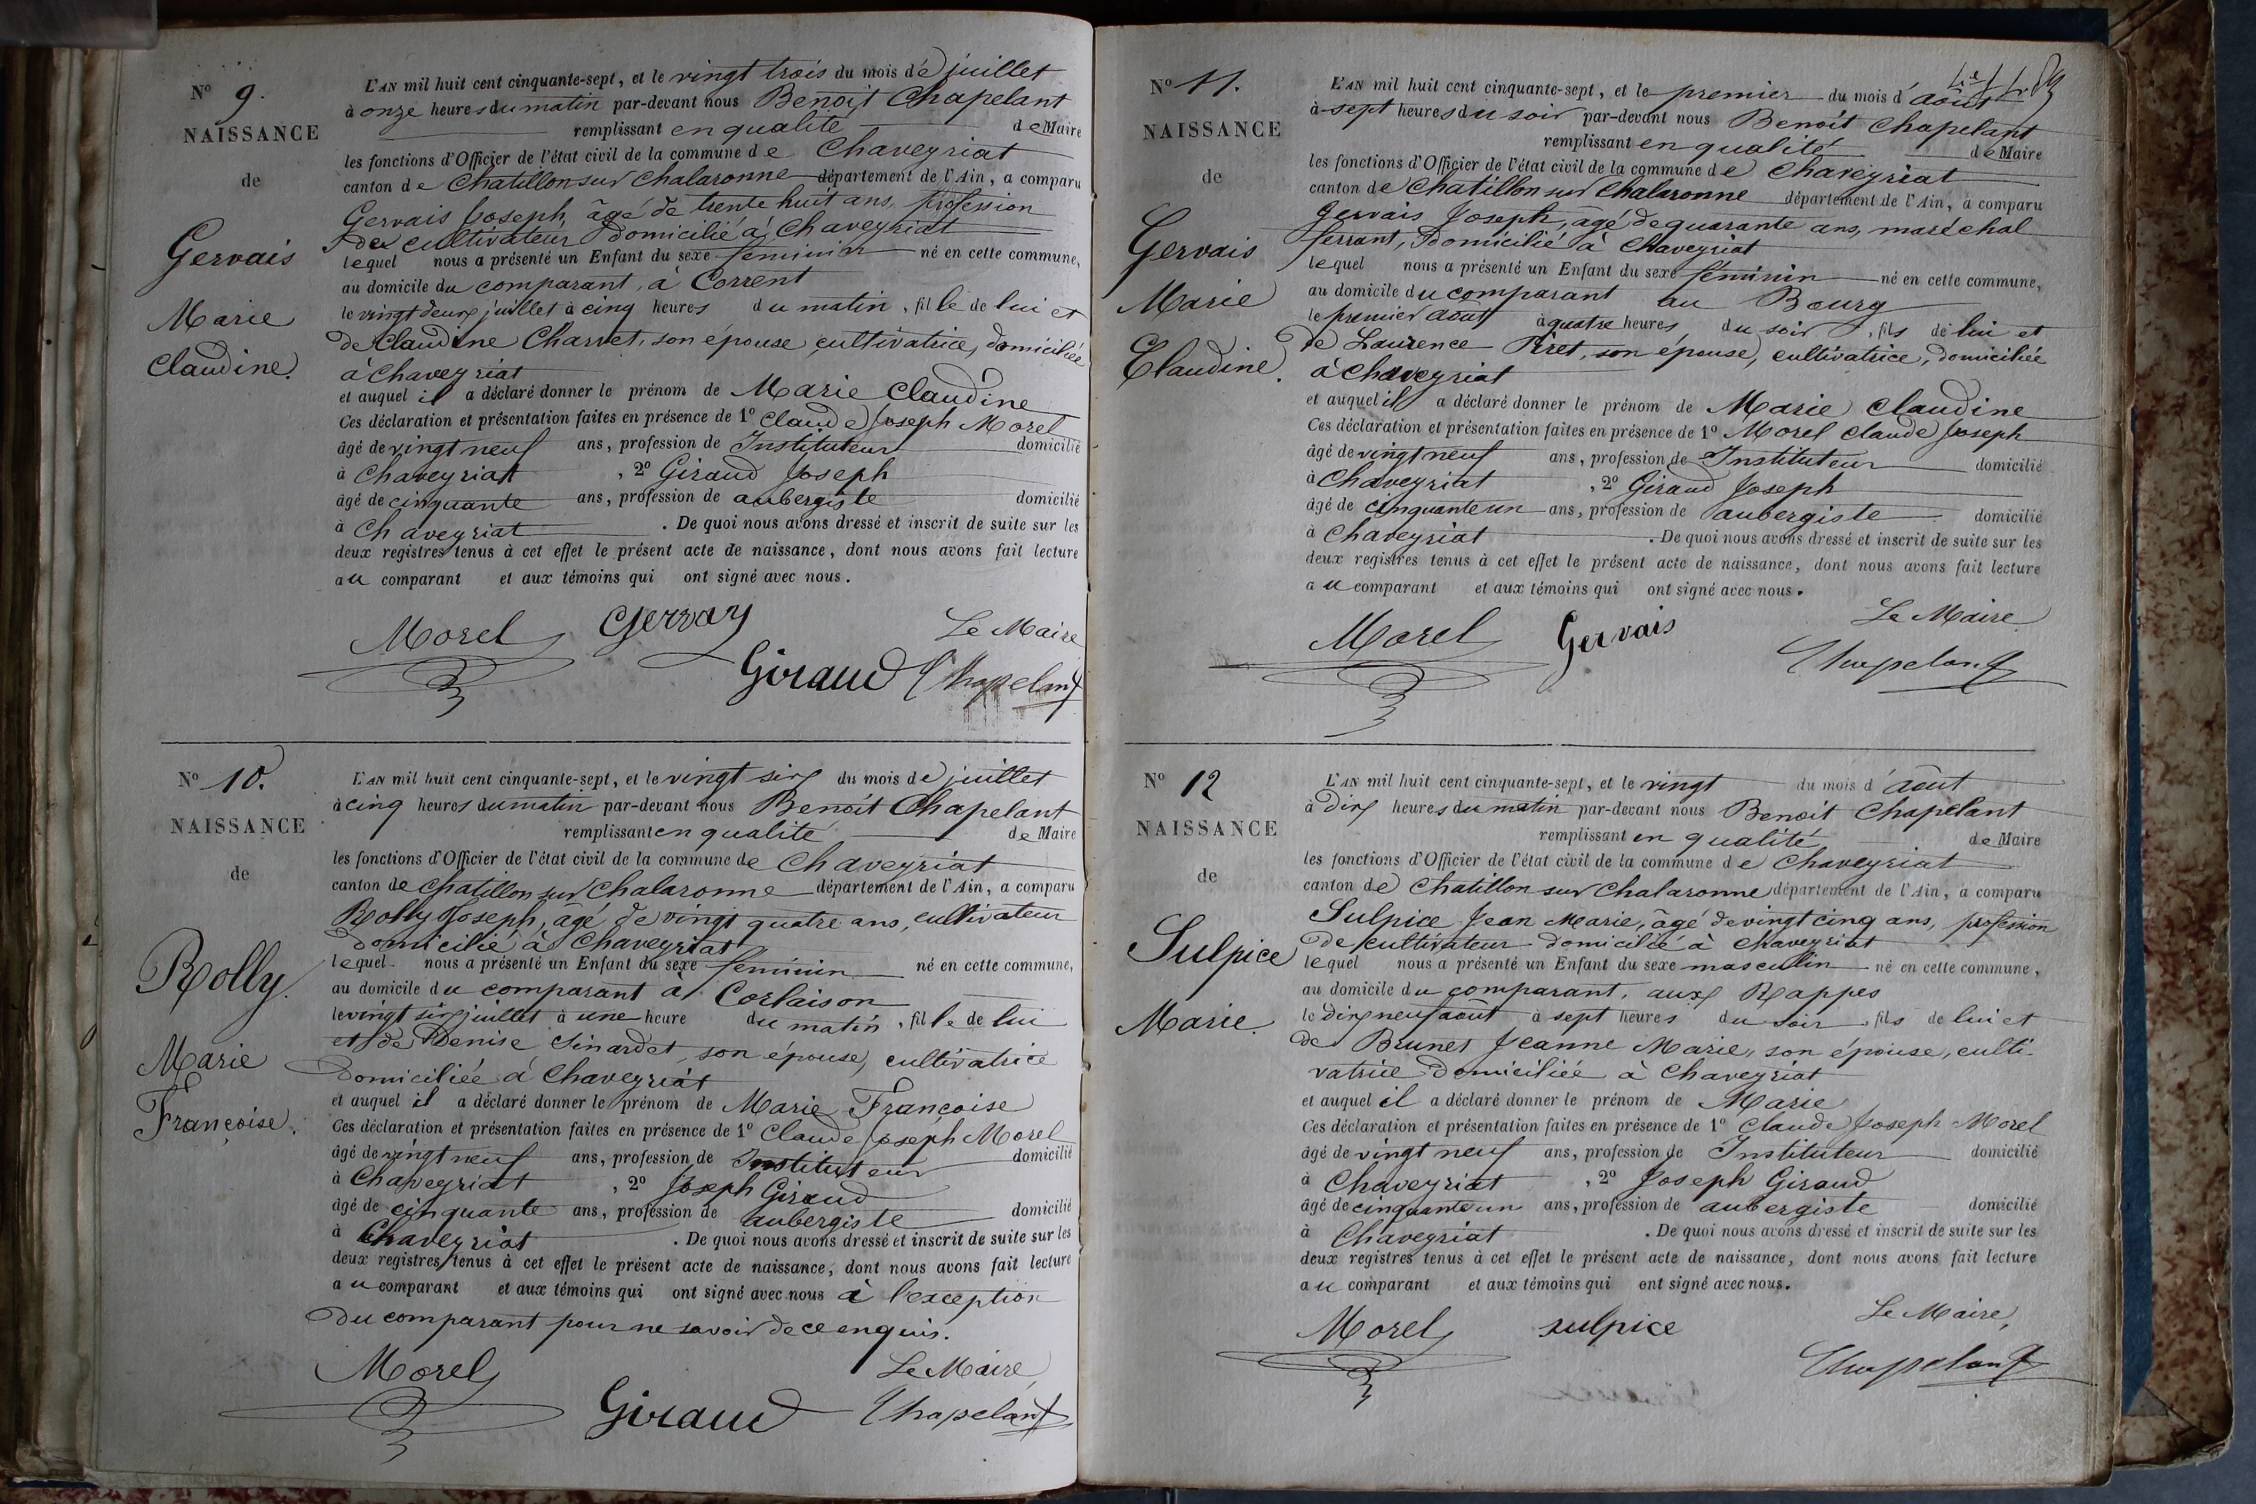 N.o 9.
NAISSANCE
de
Gervais
Marie
Claudine.
L'AN mil huit cent cinquante-sept, et le vingt trois du mois de juillet
à onze heures du matin par-devant nous Benoît Chapelant
remplissant en qualité de Maire
les fonctions d'Officier de l'état civil de la commune de Chaveyriat
canton de Chatillon sur Chalaronne département de l'Ain, a comparu
Gervais Joseph, âgé de trente huit ans, profession
de cultivateur domicilié à Chaveyriat
lequel nous a présenté un Enfant du sexe féminin né en cette commune,
au domicile du comparant, à Corrent
le vingt deux juillet à cinq heures du matin, fille de lui et
de Claudine Charvet, son épouse, cultivatrice, domiciliée
à Chaveyriat
et auquel il a déclaré donner le prénom de Marie Claudine
Ces déclaration et présentation faites en présence de 1.o Claude Joseph Morel
âgé de vingt neuf ans, profession de Instituteur domicilié
à Chaveyriat, 2.o Giraud Joseph
âgé de cinquante ans, profession de aubergiste domicilié
à Chaveyriat. De quoi nous avons dressé et inscrit de suite sur les
deux registres tenus à cet effet le présent acte de naissance, dont nous avons fait lecture
au comparant et aux témoins qui ont signé avec nous.
Morel Gervay Le Maire
Giraud Chapelant
N.o 10.
NAISSANCE
de
Rolly.
Marie
Françoise.
L'AN mil huit cent cinquante-sept, et le vingt six du mois de juillet
à cinq heures du matin par-devant nous Benoît Chapelant
remplissant en qualité de Maire
les fonctions d'Officier de l'état civil de la commune de Chaveyriat
canton de Chatillon sur Chalaronne département de l'Ain, a comparu
Rolly Joseph, âgé de vingt quatre ans, cultivateur
domicilié à Chaveyriat
lequel nous a présenté un Enfant du sexe féminin né en cette commune,
au domicile du comparant à Corlaison
le vingt six juillet à une heure du matin, fille de lui
et de Denise Sinardet, son épouse, cultivatrice
domiciliée à Chaveyriat
et auquel il a déclaré donner le prénom de Marie Françoise
Ces déclaration et présentation faites en présence de 1.o Claude Joseph Morel
âgé de vingt neuf ans, profession de Instituteur domicilié
à Chaveyriat, 2.o Joseph Giraud
âgé de cinquante ans, profession de aubergiste domicilié
à Chaveyriat. De quoi nous avons dressé et inscrit de suite sur les
deux registres tenus à cet effet le présent acte de naissance, dont nous avons fait lecture
au comparant et aux témoins qui ont signé avec nous à l'exception
du comparant pour ne savoir de ce enquis.
Morel Le Maire,
Giraud Chapelant
N.o 11.
NAISSANCE
de
Gervais
Marie
Claudine.
L'AN mil huit cent cinquante-sept, et le premier du mois d'août
à sept heures du soir par-devant nous Benoît Chapelant
remplissant en qualité de Maire
les fonctions d'Officier de l'état civil de la commune de Chaveyriat
canton de Chatillon sur Chalaronne département de l'Ain, a comparu
Gervais Joseph, âgé de quarante ans, maréchal
ferrant, domicilié à Chaveyriat
lequel nous a présenté un Enfant du sexe féminin né en cette commune,
au domicile du comparant au Bourg
le premier août à quatre heures du soir, fils de lui et
de Laurence Piret, son épouse, cultivatrice, domiciliée
à Chaveyriat
et auquel il a déclaré donner le prénom de Marie Claudine
Ces déclaration et présentation faites en présence de 1.o Morel Claude Joseph
âgé de vingt neuf ans, profession de Instituteur domicilié
à Chaveyriat, 2.o Giraud Joseph
âgé de cinquante un ans, profession de aubergiste domicilié
à Chaveyriat. De quoi nous avons dressé et inscrit de suite sur les
deux registres tenus à cet effet le présent acte de naissance, dont nous avons fait lecture
au comparant et aux témoins qui ont signé avec nous.
Morel Gervais Le Maire
Chapelant
N.o 12
NAISSANCE
de
Sulpice
Marie.
L'AN mil huit cent cinquante-sept, et le vingt du mois d'août
à dix heures du matin par-devant nous Benoit Chapelant
remplissant en qualité de Maire
les fonctions d'Officier de l'état civil de la commune de Chaveyriat
canton de Chatillon sur Chalaronne département de l'Ain, a comparu
Sulpice Jean Marie, âgé de vingt cinq ans, profession
de cultivateur domicilié à Chaveyriat
lequel nous a présenté un Enfant du sexe masculin né en cette commune,
au domicile du comparant, aux Rappes
le dix neuf août à sept heures du soir, fils de lui et
de Brunet Jeanne Marie, son épouse, culti-
vatrice domiciliée à Chaveyriat
et auquel il a déclaré donner le prénom de Marie
Ces déclaration et présentation faites en présence de 1.o Claude Joseph Morel
âgé de vingt neuf ans, profession de Instituteur domicilié
à Chaveyriat, 2.o Joseph Giraud
âgé de cinquante un ans, profession de aubergiste domicilié
à Chaveyriat. De quoi nous avons dressé et inscrit de suite sur les
deux registres tenus à cet effet le présent acte de naissance, dont nous avons fait lecture
au comparant et aux témoins qui ont signé avec nous.
Morel sulpice Le Maire,
Chapelant